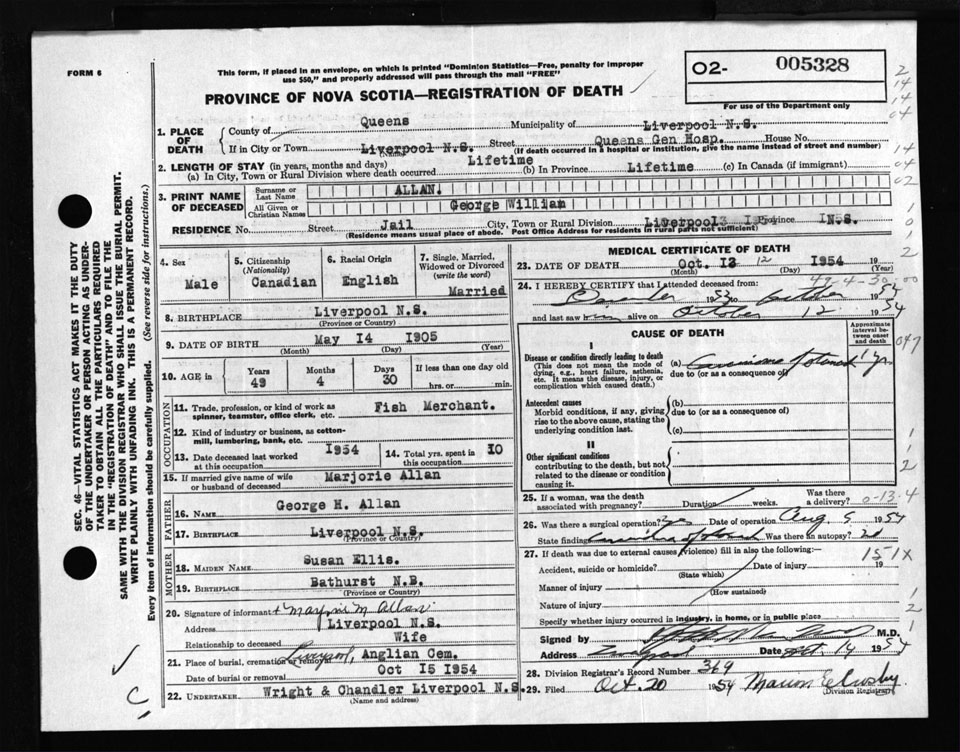 FORM 6
This form, if placed in an envelope, on which is printed "Dominion Statistics—Free, penalty for improper
use $50," and properly addressed will pass through the mail "FREE"
O2- 005328
For use of the Department only
PROVINCE OF NOVA SCOTIA—REGISTRATION OF DEATH
1. PLACE OF DEATH
County of Queens Municipality of Liverpool N.S.
If in City or Town Liverpool N.S. Street Queens Gen Hosp. House No.
(Name) (If death occurred in a hospital or institution, give the name instead of street and number)
2. LENGTH OF STAY (in years, months and days)
(a) In City, Town or Rural Division where death occurred Lifetime (b) In Province Lifetime (c) In Canada (if immigrant)
3. PRINT NAME OF DECEASED
Surname or Last Name ALLAN.
All Given or Christian Names George William
RESIDENCE No. Street Jail City, Town or Rural Division Liverpool Province N.S.
(Residence means usual place of abode. Post Office Address for residents in rural parts not sufficient)
4. Sex Male
5. Citizenship (Nationality) Canadian
6. Racial Origin English
7. Single, Married, Widowed or Divorced (write the word) Married
8. BIRTHPLACE Liverpool N.S.
(Province or Country)
9. DATE OF BIRTH May 14 1905
(Month) (Day) (Year)
10. AGE in Years 49 Months 4 Days 30 If less than one day old hrs. or min.
OCCUPATION
11. Trade, profession, or kind of work as spinner, teamster, office clerk, etc. Fish Merchant.
12. Kind of industry or business, as cotton-mill, lumbering, bank, etc.
13. Date deceased last worked at this occupation 1954
14. Total yrs. spent in this occupation 10
15. If married give name of wife or husband of deceased Marjorie Allan
FATHER
16. NAME George H. Allan
17. BIRTHPLACE Liverpool N.S.
(Province or Country)
MOTHER
18. MAIDEN NAME Susan Ellis.
19. BIRTHPLACE Bathurst N.B.
(Province or Country)
20. Signature of informant Marjorie M. Allan
Address Liverpool N.S.
Relationship to deceased Wife
21. Place of burial, cremation or removal Liverpool, Anglian Cem.
Date of burial or removal Oct 15 1954
22. UNDERTAKER Wright & Chandler Liverpool N.S.
(NAME AND ADDRESS)
MEDICAL CERTIFICATE OF DEATH
23. DATE OF DEATH Oct. 13 12 1954 19
(Month) (Day) (Year)
24. I HEREBY CERTIFY that I attended deceased from:
December 1953 to October 1954
and last saw him alive on October 12 1954
CAUSE OF DEATH
Approximate interval between onset and death
I
Disease or condition directly leading to death
(This does not mean the mode of dying, e.g., heart failure, asthenia, etc. It means the disease, injury, or complication which caused death.)
(a) Carcinoma of stomach 1 yr.
due to (or as a consequence of)
Antecedent causes
Morbid conditions, if any, giving rise to the above cause, stating the underlying condition last.
(b)
due to (or as a consequence of)
(c)
II
Other significant conditions
contributing to the death, but not related to the disease or condition causing it.
25. If a woman, was the death associated with pregnancy? Duration weeks. Was there a delivery?
26. Was there a surgical operation? yes Date of operation Aug 5 1954
State finding Carcinoma of stomach Was there an autopsy?
27. If death was due to external causes (violence) fill in also the following:—
Accident, suicide or homicide? Date of injury 19
(State which)
Manner of injury
(How sustained)
Nature of injury
Specify whether injury occurred in industry, in home, or in public place
151X
Signed by M.D.
Address Liverpool Date Oct. 14 1954
28. Division Registrar's Record Number 369
29. Filed Oct. 20 1954
(Division Registrar)
SEC. 46—VITAL STATISTICS ACT MAKES IT THE DUTY
OF THE UNDERTAKER OR PERSON ACTING AS UNDER-
TAKER TO OBTAIN ALL THE PARTICULARS REQUIRED
IN THE "REGISTRATION OF DEATH" AND TO FILE THE
SAME WITH THE DIVISION REGISTRAR WHO SHALL ISSUE THE BURIAL PERMIT.
WRITE PLAINLY WITH UNFADING INK. THIS IS A PERMANENT RECORD.
Every item of information should be carefully supplied. (See reverse side for instructions.)